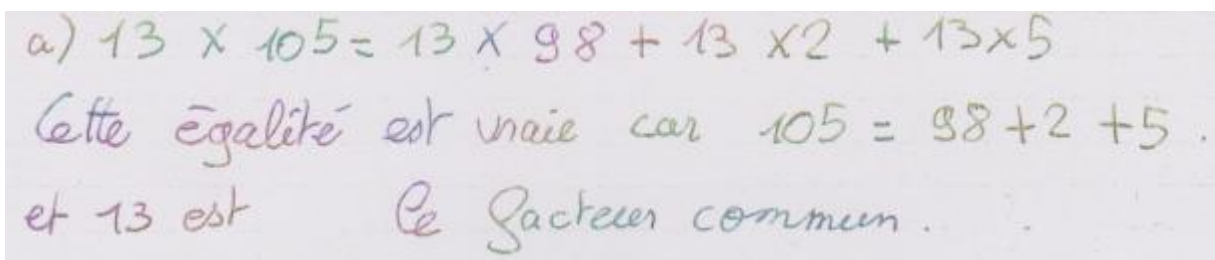 a) 13 × 105 = 13 × 98 + 13 ×2 + 13×5
Cette égalité est vraie car 105 = 98+2 +5 .
et 13 est le facteur commun .